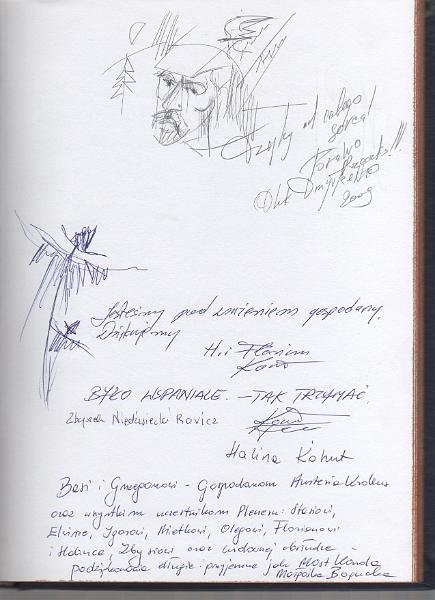 od całego
serca!
Brawo
2009
Jesteśmy pod wrażeniem gospodarzy.
Dziękujemy
H. i Florian
BYŁO WSPANIALE. – TAK TRZYMAĆ.
Zbyszek Niedźwiecki Ravicz
Halina Kohut
Basi i Grzegorzowi – Gospodarzom Austeria Krokus
oraz wszystkim uczestnikom Pleneru: Stasiowi,
Elwirze, Igorowi, Mietkowi, Olegowi, Florianowi
i Halince, Zbysiowi oraz cudownej obsłudze –
podziękowania długie i przyjemne jak Most Karola
Małgośka Bogucka